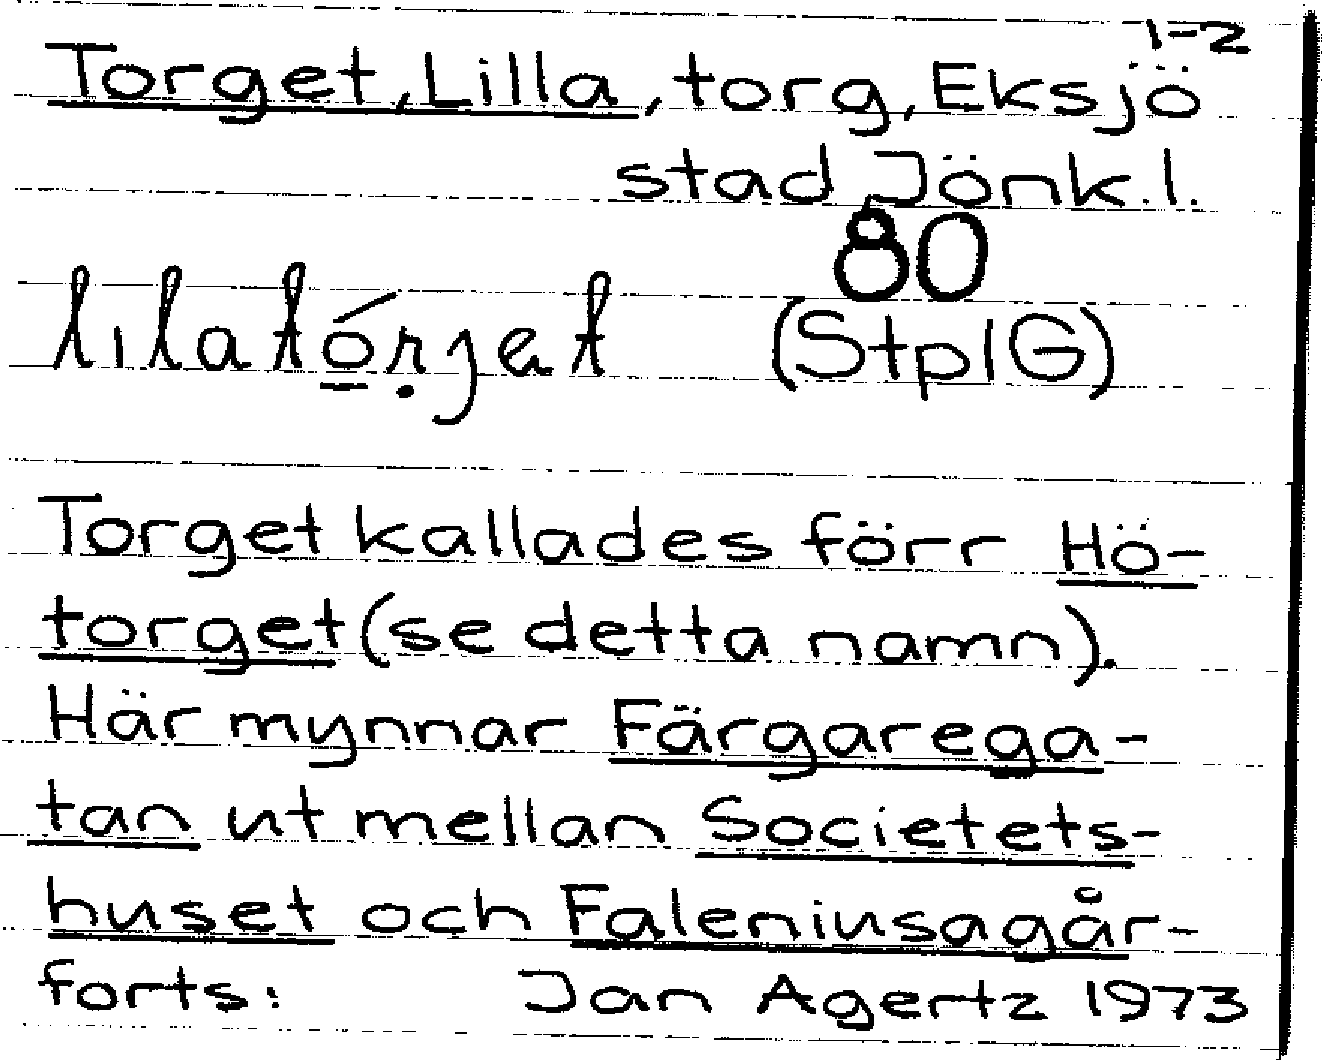 1-2
Torget, Lilla, torg, Eksjö
stad Jönk.l.
80
(StplG)
Torget kallades förr Hö-
torget (se detta namn).
Här mynnar Färgarega-
tan ut mellan Societets-
huset och Faleniusagår-
forts: Jan Agertz 1973